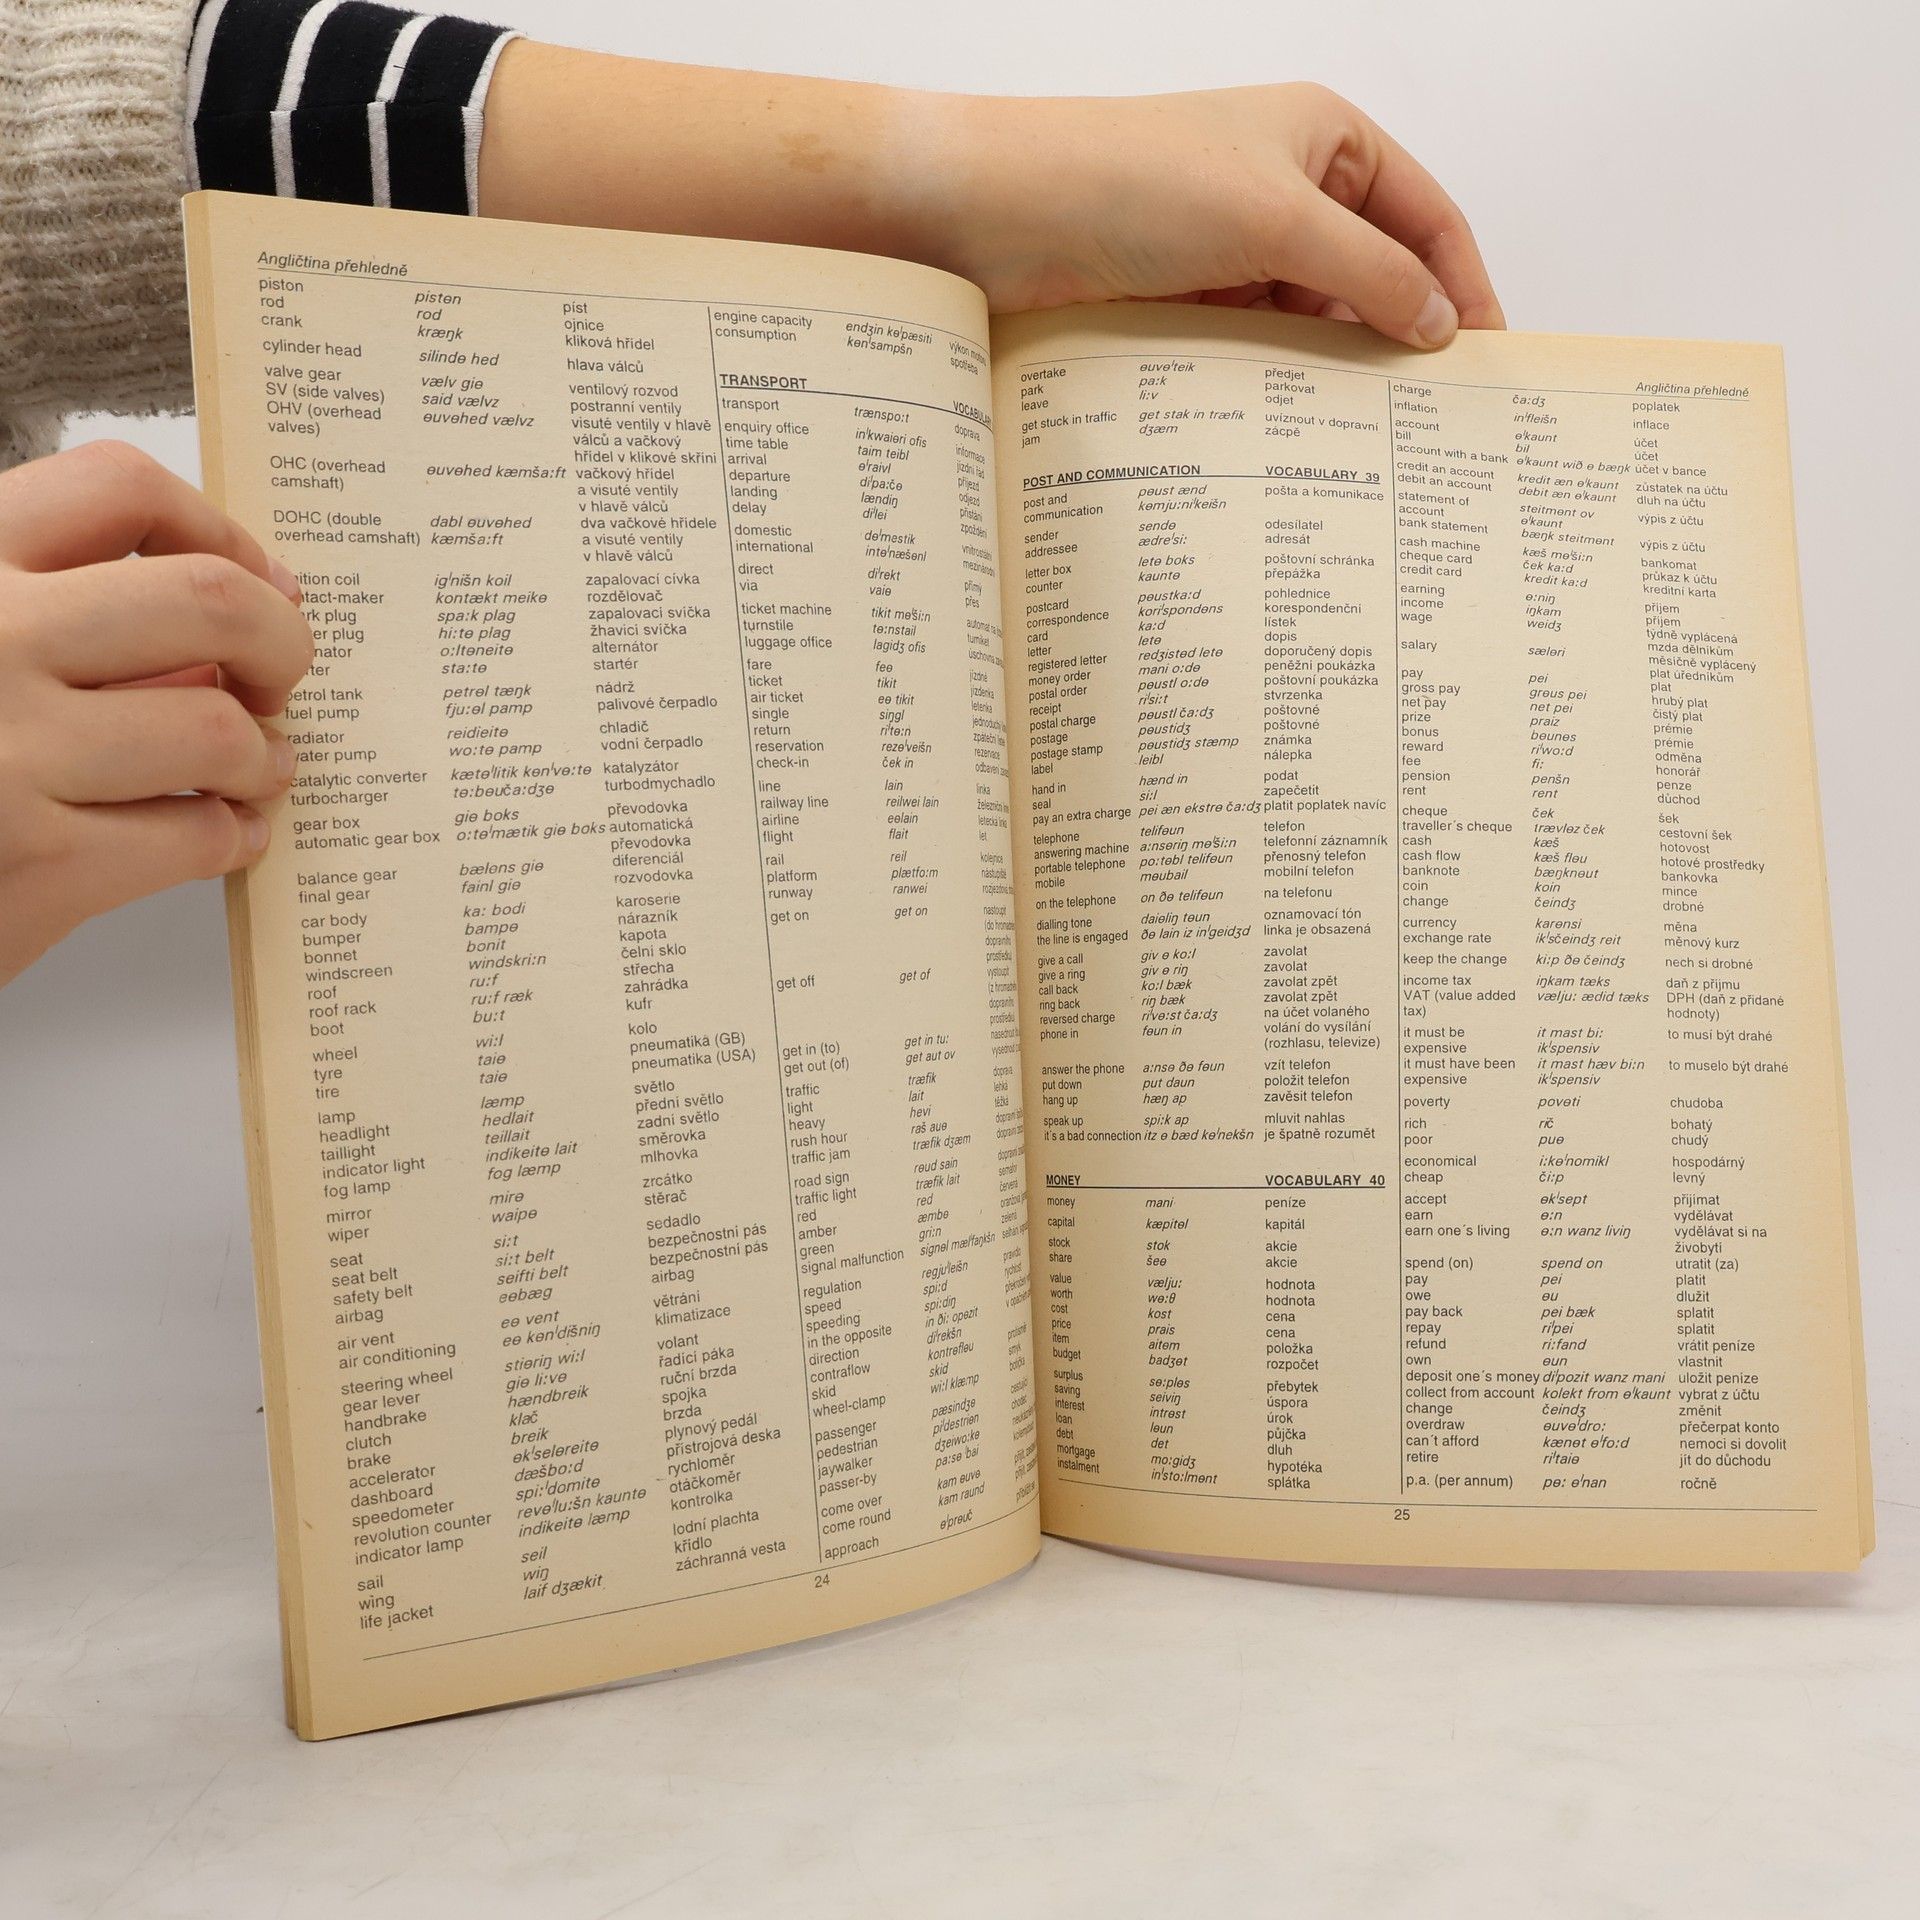 Angličtina přehledně
piston pistɵn píst
rod rod ojnice
crank kræŋk kliková hřídel
cylinder head silindɵ hed hlava válců
valve gear vælv giɵ ventilový rozvod
SV (side valves) said vælvz postranní ventily
OHV (overhead ɵuvɵhed vælvz visuté ventily v hlavě
valves) válců a vačkový
hřídel v klikové skřini
OHC (overhead ɵuvɵhed kæmša:ft vačkový hřídel
camshaft) a visuté ventily
v hlavě válců
DOHC (double dabl ɵuvɵhed dva vačkové hřídele
overhead camshaft) kæmša:ft a visuté ventily
v hlavě válců
coil igˈnišn koil zapalovací cívka
kontækt meikɵ rozdělovač
plug spa:k plag zapalovací svíčka
plug hi:tɵ plag žhavicí svíčka
o:ltɵneitɵ alternátor
sta:tɵ startér
petrol tank petrɵl tæŋk nádrž
fuel pump fju:ɵl pamp palivové čerpadlo
radiator reidieitɵ chladič
water pump wo:tɵ pamp vodní čerpadlo
catalytic converter kætɵˈlitik kɵnˈvɵ:tɵ katalyzátor
turbocharger tɵ:bɵuča:dʒɵ turbodmychadlo
gear box giɵ boks převodovka
automatic gear box o:tɵˈmætik giɵ boks automatická
převodovka
balance gear bælɵns giɵ diferenciál
final gear fainl giɵ rozvodovka
car body ka: bodi karoserie
bumper bampɵ nárazník
bonnet bonit kapota
windscreen windskri:n čelní sklo
roof ru:f střecha
roof rack ru:f ræk zahrádka
boot bu:t kufr
wheel wi:l kolo
tyre taiɵ pneumatika (GB)
tire taiɵ pneumatika (USA)
lamp læmp světlo
headlight hedlait přední světlo
taillight teillait zadní světlo
indicator light indikeitɵ lait směrovka
fog lamp fog læmp mlhovka
mirror mirɵ zrcátko
wiper waipɵ stěrač
seat si:t sedadlo
seat belt si:t belt bezpečnostní pás
safety belt seifti belt bezpečnostní pás
airbag eɵbæg airbag
air vent eɵ vent větrání
air conditioning eɵ kɵnˈdišniŋ klimatizace
steering wheel stiɵriŋ wi:l volant
gear lever giɵ li:vɵ řadící páka
handbrake hændbreik ruční brzda
clutch klač spojka
brake breik brzda
accelerator ɵkˈselɵreitɵ plynový pedál
dashboard dæšbo:d přístrojová deska
speedometer spi:ˈdomitɵ rychloměr
revolution counter revɵˈlu:šn kauntɵ otáčkoměr
indicator lamp indikeitɵ læmp kontrolka
sail seil lodní plachta
wing wiŋ křídlo
life jacket laif dʒækit záchranná vesta
engine capacity endʒin kɵˈpæsiti výkon motoru
consumption kɵnˈsampšn spotřeba
TRANSPORT
transport trænspo:t doprava
enquiry office inˈkwaiɵri ofis informace
time table taim teibl jízdní řád
arrival ɵˈraivl příjezd
departure diˈpa:čɵ odjezd
landing lændiŋ přistání
delay diˈlei zpoždění
domestic dɵˈmestik
international intɵˈnæšɵnl
direct diˈrekt přímý
via vaiɵ přes
ticket machine tikit mɵˈši:n
turnstile tɵ:nstail turniket
luggage office lagidʒ ofis
fare feɵ jízdné
ticket tikit jízdenka
air ticket eɵ tikit letenka
single siŋgl
return riˈtɵ:n
reservation rezɵˈveišn rezervace
check-in ček in
line lain linka
railway line reilwei lain
airline eɵlain
flight flait let
rail reil kolejnice
platform plætfo:m nástupiště
runway ranwei
get on get on
get off get of
get in (to) get in tu:
get out (of) get aut ov
traffic træfik doprava
light lait lehká
heavy hevi těžká
rush hour raš auɵ
traffic jam træfik dʒæm
road sign rɵud sain
traffic light træfik lait
red red červená
amber æmbɵ
green gri:n zelená
signal malfunction signɵl mælˈfaŋkšn
regulation regjuˈleišn
speed spi:d rychlost
speeding spi:diŋ
in the opposite in ði: opɵzit
direction diˈrekšn
contraflow kontrɵflɵu
skid skid smyk
wheel-clamp wi:l klæmp
passenger pæsindʒɵ
pedestrian piˈdestriɵn chodec
jaywalker dʒeiwo:kɵ
passer-by pa:sɵ ˈbai
come over kam ɵuvɵ
come round kam raund
approach ɵˈprɵuč
24
Angličtina přehledně
overtake ɵuvɵˈteik předjet
park pa:k parkovat
leave li:v odjet
get stuck in traffic get stak in træfik uvíznout v dopravní
jam dʒæm zácpě
POST AND COMMUNICATION VOCABULARY 39
post and pɵust ænd pošta a komunikace
communication kɵmju:niˈkeišn
sender sendɵ odesílatel
addressee ædreˈsi: adresát
letter box letɵ boks poštovní schránka
counter kauntɵ přepážka
postcard pɵustka:d pohlednice
correspondence koriˈspondɵns korespondenční
card ka:d lístek
letter letɵ dopis
registered letter redʒistɵd letɵ doporučený dopis
money order mani o:dɵ peněžní poukázka
postal order pɵustl o:dɵ poštovní poukázka
receipt riˈsi:t stvrzenka
postal charge pɵustl ča:dʒ poštovné
postage pɵustidʒ poštovné
postage stamp pɵustidʒ stæmp známka
label leibl nálepka
hand in hænd in podat
seal si:l zapečetit
pay an extra charge pei æn ekstrɵ ča:dʒ platit poplatek navíc
telephone telifɵun telefon
answering machine a:nsɵriŋ mɵˈši:n telefonní záznamník
portable telephone po:tɵbl telifɵun přenosný telefon
mobile mɵubail mobilní telefon
on the telephone on ðɵ telifɵun na telefonu
dialling tone daiɵliŋ tɵun oznamovací tón
the line is engaged ðɵ lain iz inˈgeidʒd linka je obsazená
give a call giv ɵ ko:l zavolat
give a ring giv ɵ riŋ zavolat
call back ko:l bæk zavolat zpět
ring back riŋ bæk zavolat zpět
reversed charge riˈvɵ:st ča:dʒ na účet volaného
phone in fɵun in volání do vysílání
(rozhlasu, televize)
answer the phone a:nsɵ ðɵ fɵun vzít telefon
put down put daun položit telefon
hang up hæŋ ap zavěsit telefon
speak up spi:k ap mluvit nahlas
it´s a bad connection itz ɵ bæd kɵˈnekšn je špatně rozumět
MONEY VOCABULARY 40
money mani peníze
capital kæpitɵl kapitál
stock stok akcie
share šeɵ akcie
value vælju: hodnota
worth wɵ:θ hodnota
cost kost cena
price prais cena
item aitɵm položka
budget badʒɵt rozpočet
surplus sɵ:plɵs přebytek
saving seiviŋ úspora
interest intrɵst úrok
loan lɵun půjčka
debt det dluh
mortgage mo:gidʒ hypotéka
instalment inˈsto:lmɵnt splátka
charge ča:dʒ poplatek
inflation inˈfleišn inflace
account ɵˈkaunt účet
bill bil účet
account with a bank ɵˈkaunt wið ɵ bæŋk účet v bance
credit an account kredit æn ɵˈkaunt zůstatek na účtu
debit an account debit æn ɵˈkaunt dluh na účtu
statement of steitmɵnt ov výpis z účtu
account ɵˈkaunt
bank statement bæŋk steitmɵnt výpis z účtu
cash machine kæš mɵˈši:n bankomat
cheque card ček ka:d průkaz k účtu
credit card kredit ka:d kreditní karta
earning ɵ:niŋ příjem
income iŋkam příjem
wage weidʒ týdně vyplácená
mzda dělníkům
salary sælɵri měsíčně vyplácený
plat úředníkům
pay pei plat
gross pay grɵus pei hrubý plat
net pay net pei čistý plat
prize praiz prémie
bonus bɵunɵs prémie
reward riˈwo:d odměna
fee fi: honorář
pension penšn penze
rent rent důchod
cheque ček šek
traveller´s cheque trævlɵz ček cestovní šek
cash kæš hotovost
cash flow kæš flɵu hotové prostředky
banknote bæŋknɵut bankovka
coin koin mince
change čeindʒ drobné
currency karɵnsi měna
exchange rate ikˈsčeindʒ reit měnový kurz
keep the change ki:p ðɵ čeindʒ nech si drobné
income tax iŋkam tæks daň z příjmu
VAT (value added vælju: ædid tæks DPH (daň z přidané
tax) hodnoty)
it must be it mast bi: to musí být drahé
expensive ikˈspensiv
it must have been it mast hæv bi:n to muselo být drahé
expensive ikˈspensiv
poverty povɵti chudoba
rich rič bohatý
poor puɵ chudý
economical i:kɵˈnomikl hospodárný
cheap či:p levný
accept ɵkˈsept přijímat
earn ɵ:n vydělávat
earn one´s living ɵ:n wanz liviŋ vydělávat si na
živobytí
spend (on) spend on utratit (za)
pay pei platit
owe ɵu dlužit
pay back pei bæk splatit
repay riˈpei splatit
refund ri:fand vrátit peníze
own ɵun vlastnit
deposit one´s money diˈpozit wanz mani uložit peníze
collect from account kolekt from ɵˈkaunt vybrat z účtu
change čeindʒ změnit
overdraw ɵuvɵˈdro: přečerpat konto
can´t afford kænɵt ɵˈfo:d nemoci si dovolit
retire riˈtaiɵ jít do důchodu
p.a. (per annum) pɵ: ɵˈnan ročně
25